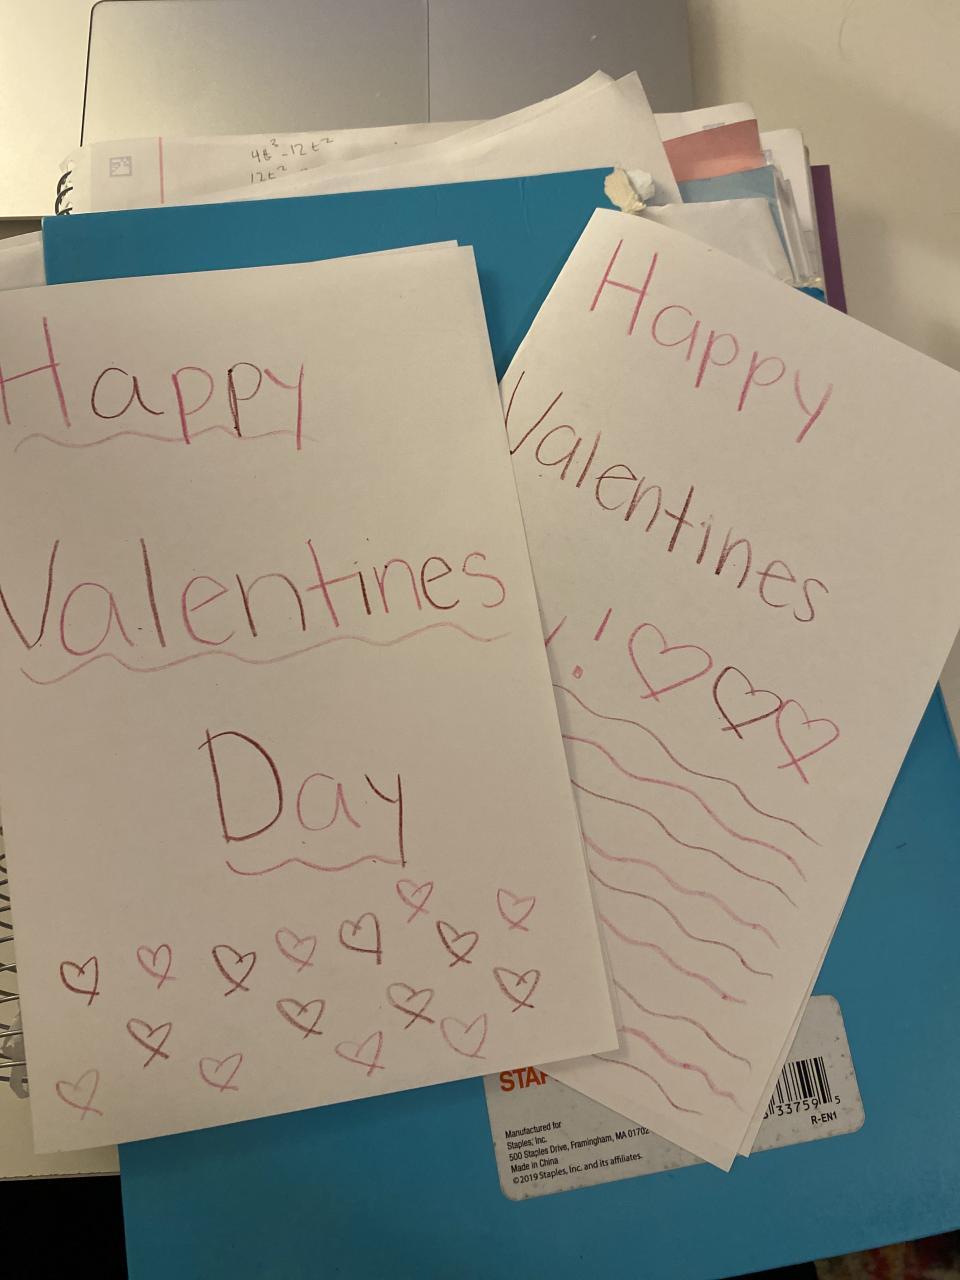 4t³-12t²
12t²
Happy
Valentines
Day
Happy
Valentines
!
STAP
Manufactured for
Staples, Inc.
500 Staples Drive, Framingham, MA 01702
Made in China
©2019 Staples, Inc. and its affiliates.
33759 5
R-EN1